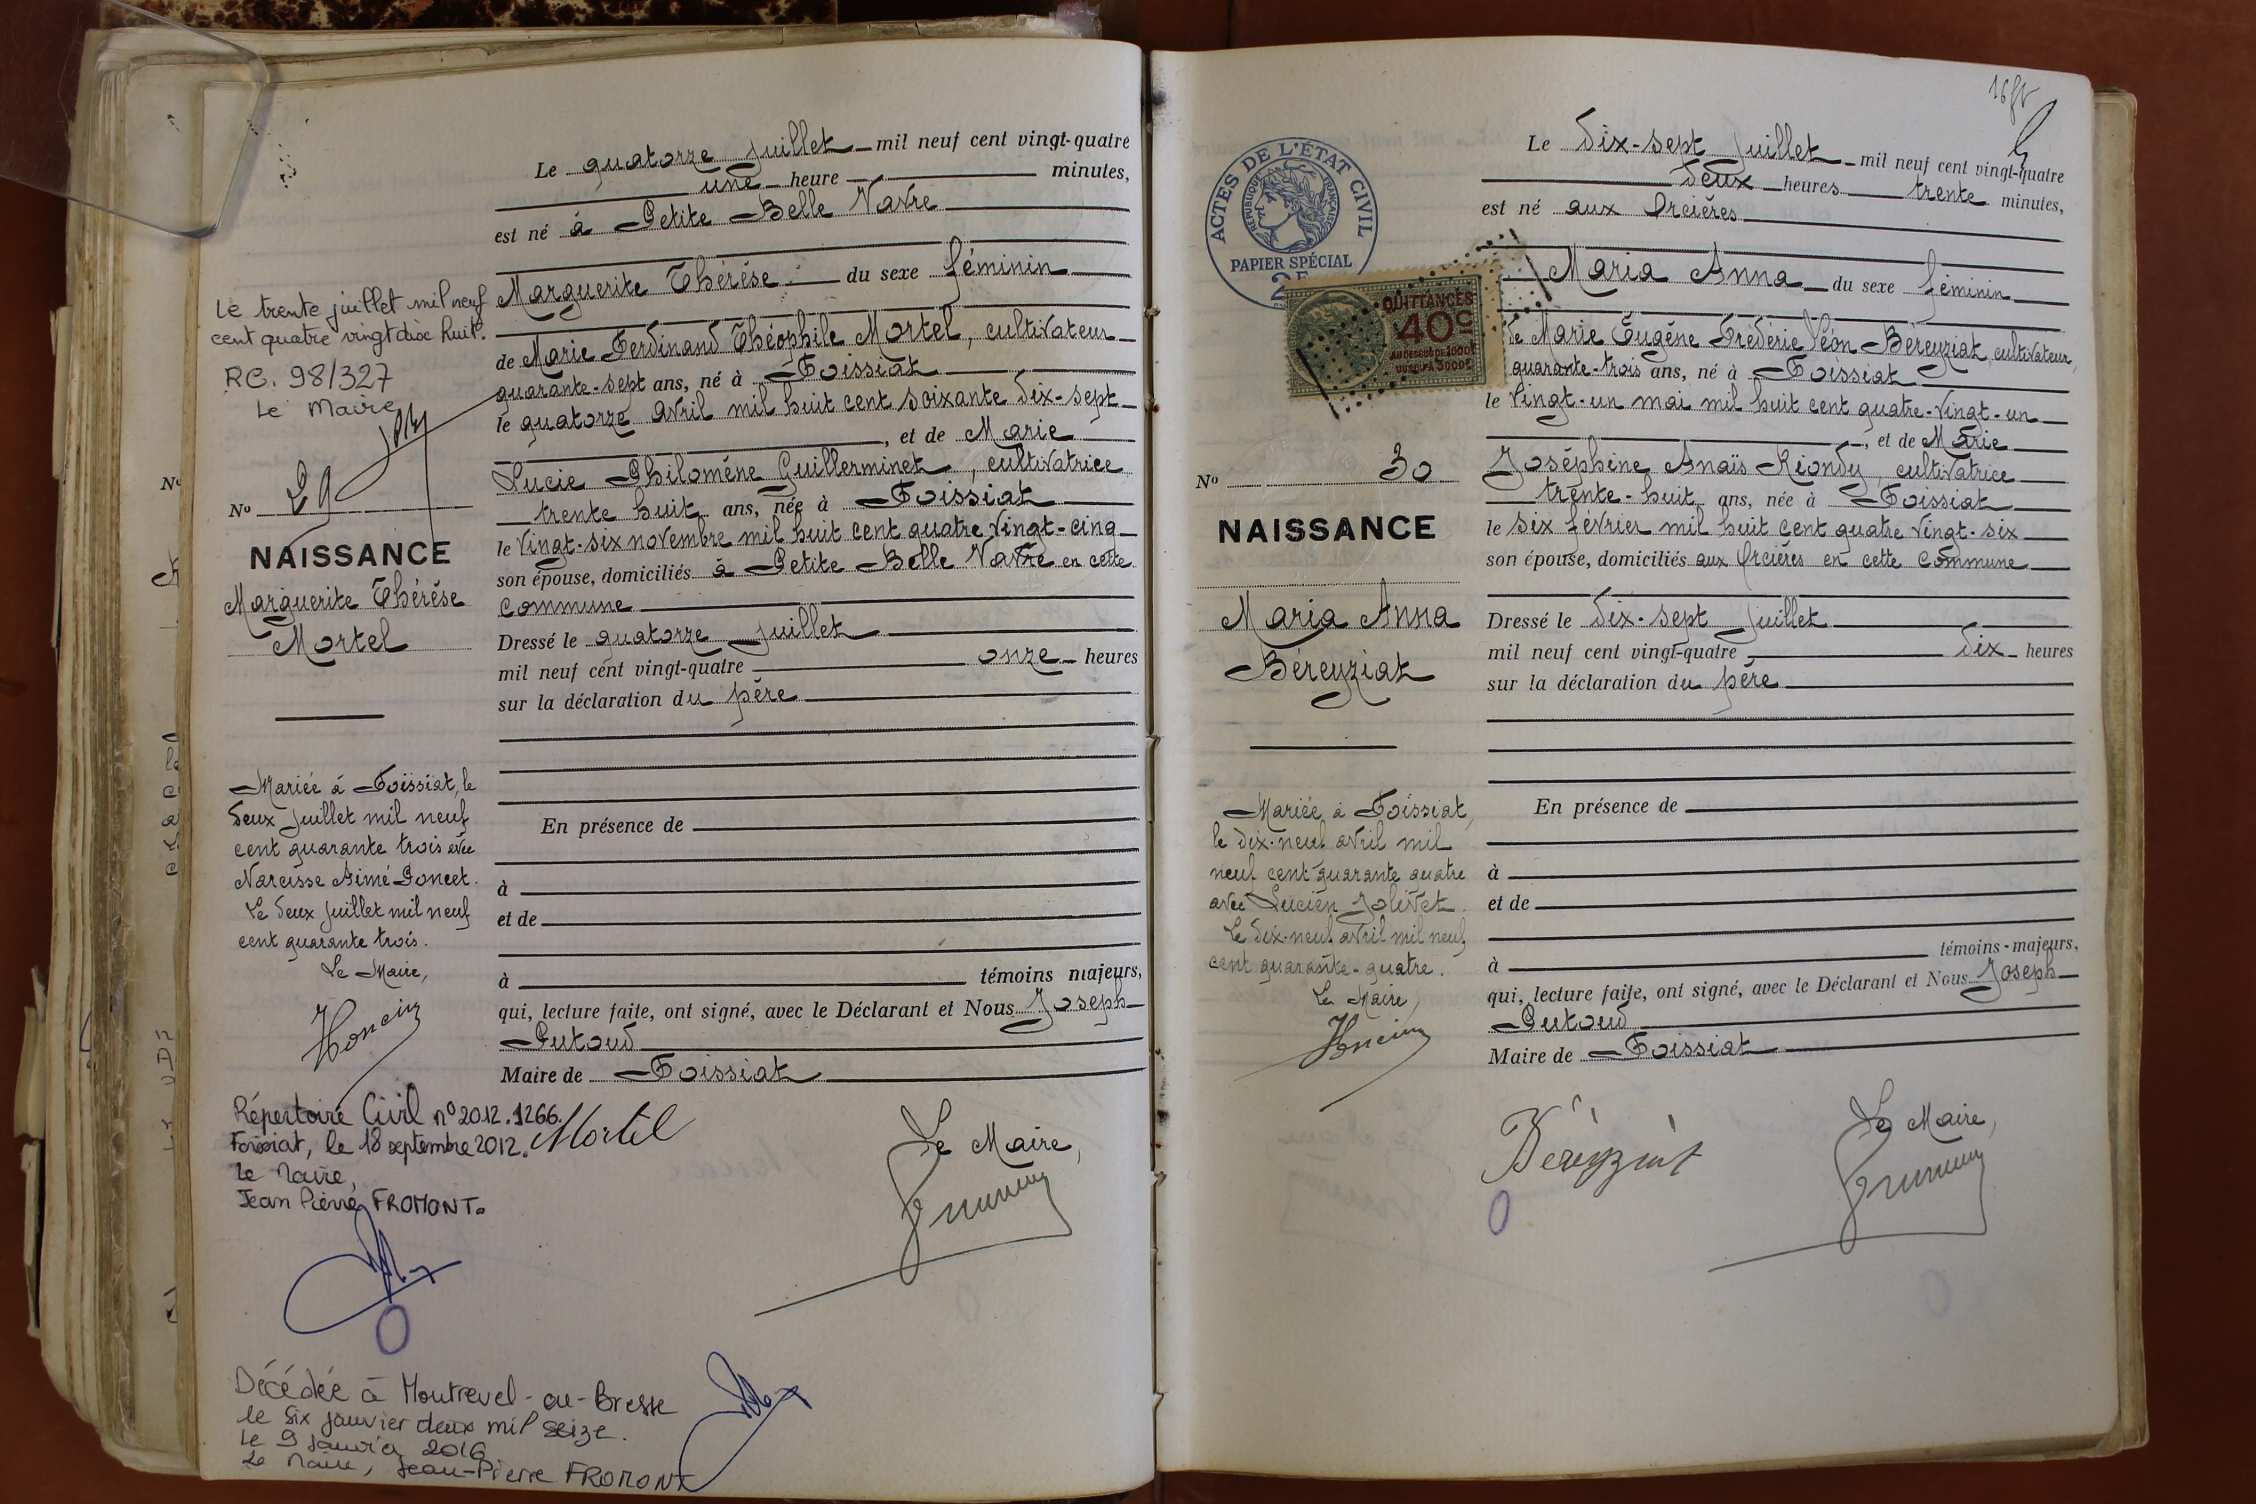 Le quatorze juillet mil neuf cent vingt-quatre
une heure minutes,
est né à Petite Belle Navre
Marguerite Thérèse du sexe féminin
de Marie Ferdinand Théophile Mortel, cultivateur
quarante-sept ans, né à Foissiat
le quatorze avril mil huit cent soixante dix-sept
, et de Marie
Lucie Philomène Guillerminet, cultivatrice
trente huit ans, née à Foissiat
le vingt-six novembre mil huit cent quatre vingt-cinq
son épouse, domiciliés à Petite Belle Navre en cette
commune
Dressé le quatorze juillet
mil neuf cent vingt-quatre onze heures
sur la déclaration du père
En présence de
à
et de
à témoins majeurs,
qui, lecture faite, ont signé, avec le Déclarant et Nous Joseph
Putoud
Maire de Foissiat
Mortel
Le Maire,
Le trente juillet mil neuf
cent quatre vingt dix huit.
RC. 98/327
Le Maire
No 29
NAISSANCE
Marguerite Thérèse
Mortel
Mariée à Foissiat, le
deux juillet mil neuf
cent quarante trois avec
Narcisse Aimé Poncet.
Le deux juillet mil neuf
cent quarante trois.
Le Maire,
Répertoire Civil n° 2012.1266.
Foissiat, le 18 septembre 2012.
Le Maire,
Jean Pierre FROMONT.
Décédée à Montrevel-en-Bresse
le six janvier deux mil seize.
Le 9 janvier 2016
Le Maire, Jean-Pierre FROMONT
Le dix-sept juillet mil neuf cent vingt-quatre
deux heures trente minutes,
est né aux Orcières
Maria Anna du sexe féminin
de Marie Eugène Frédéric Léon Béreyziat, cultivateur,
quarante-trois ans, né à Foissiat
le vingt-un mai mil huit cent quatre-vingt-un
, et de Marie
Joséphine Anaïs Riondy, cultivatrice
trente-huit ans, née à Foissiat
le six février mil huit cent quatre vingt-six
son épouse, domiciliés aux Orcières en cette commune
Dressé le dix-sept juillet
mil neuf cent vingt-quatre dix heures
sur la déclaration du père
En présence de
à
et de
à témoins-majeurs,
qui, lecture faite, ont signé, avec le Déclarant et Nous Joseph
Putoud
Maire de Foissiat
Béreyziat
Le Maire,
ACTES DE L'ÉTAT CIVIL
RÉPUBLIQUE FRANÇAISE
PAPIER SPÉCIAL
2F
QUITTANCES
40c
AU DESSUS DE 1000f
JUSQU'À 3000f
No 30
NAISSANCE
Maria Anna
Béreyziat
Mariée à Foissiat,
le dix-neuf avril mil
neuf cent quarante quatre
avec Lucien Jolivet.
Le dix-neuf avril mil neuf
cent quarante-quatre.
Le Maire